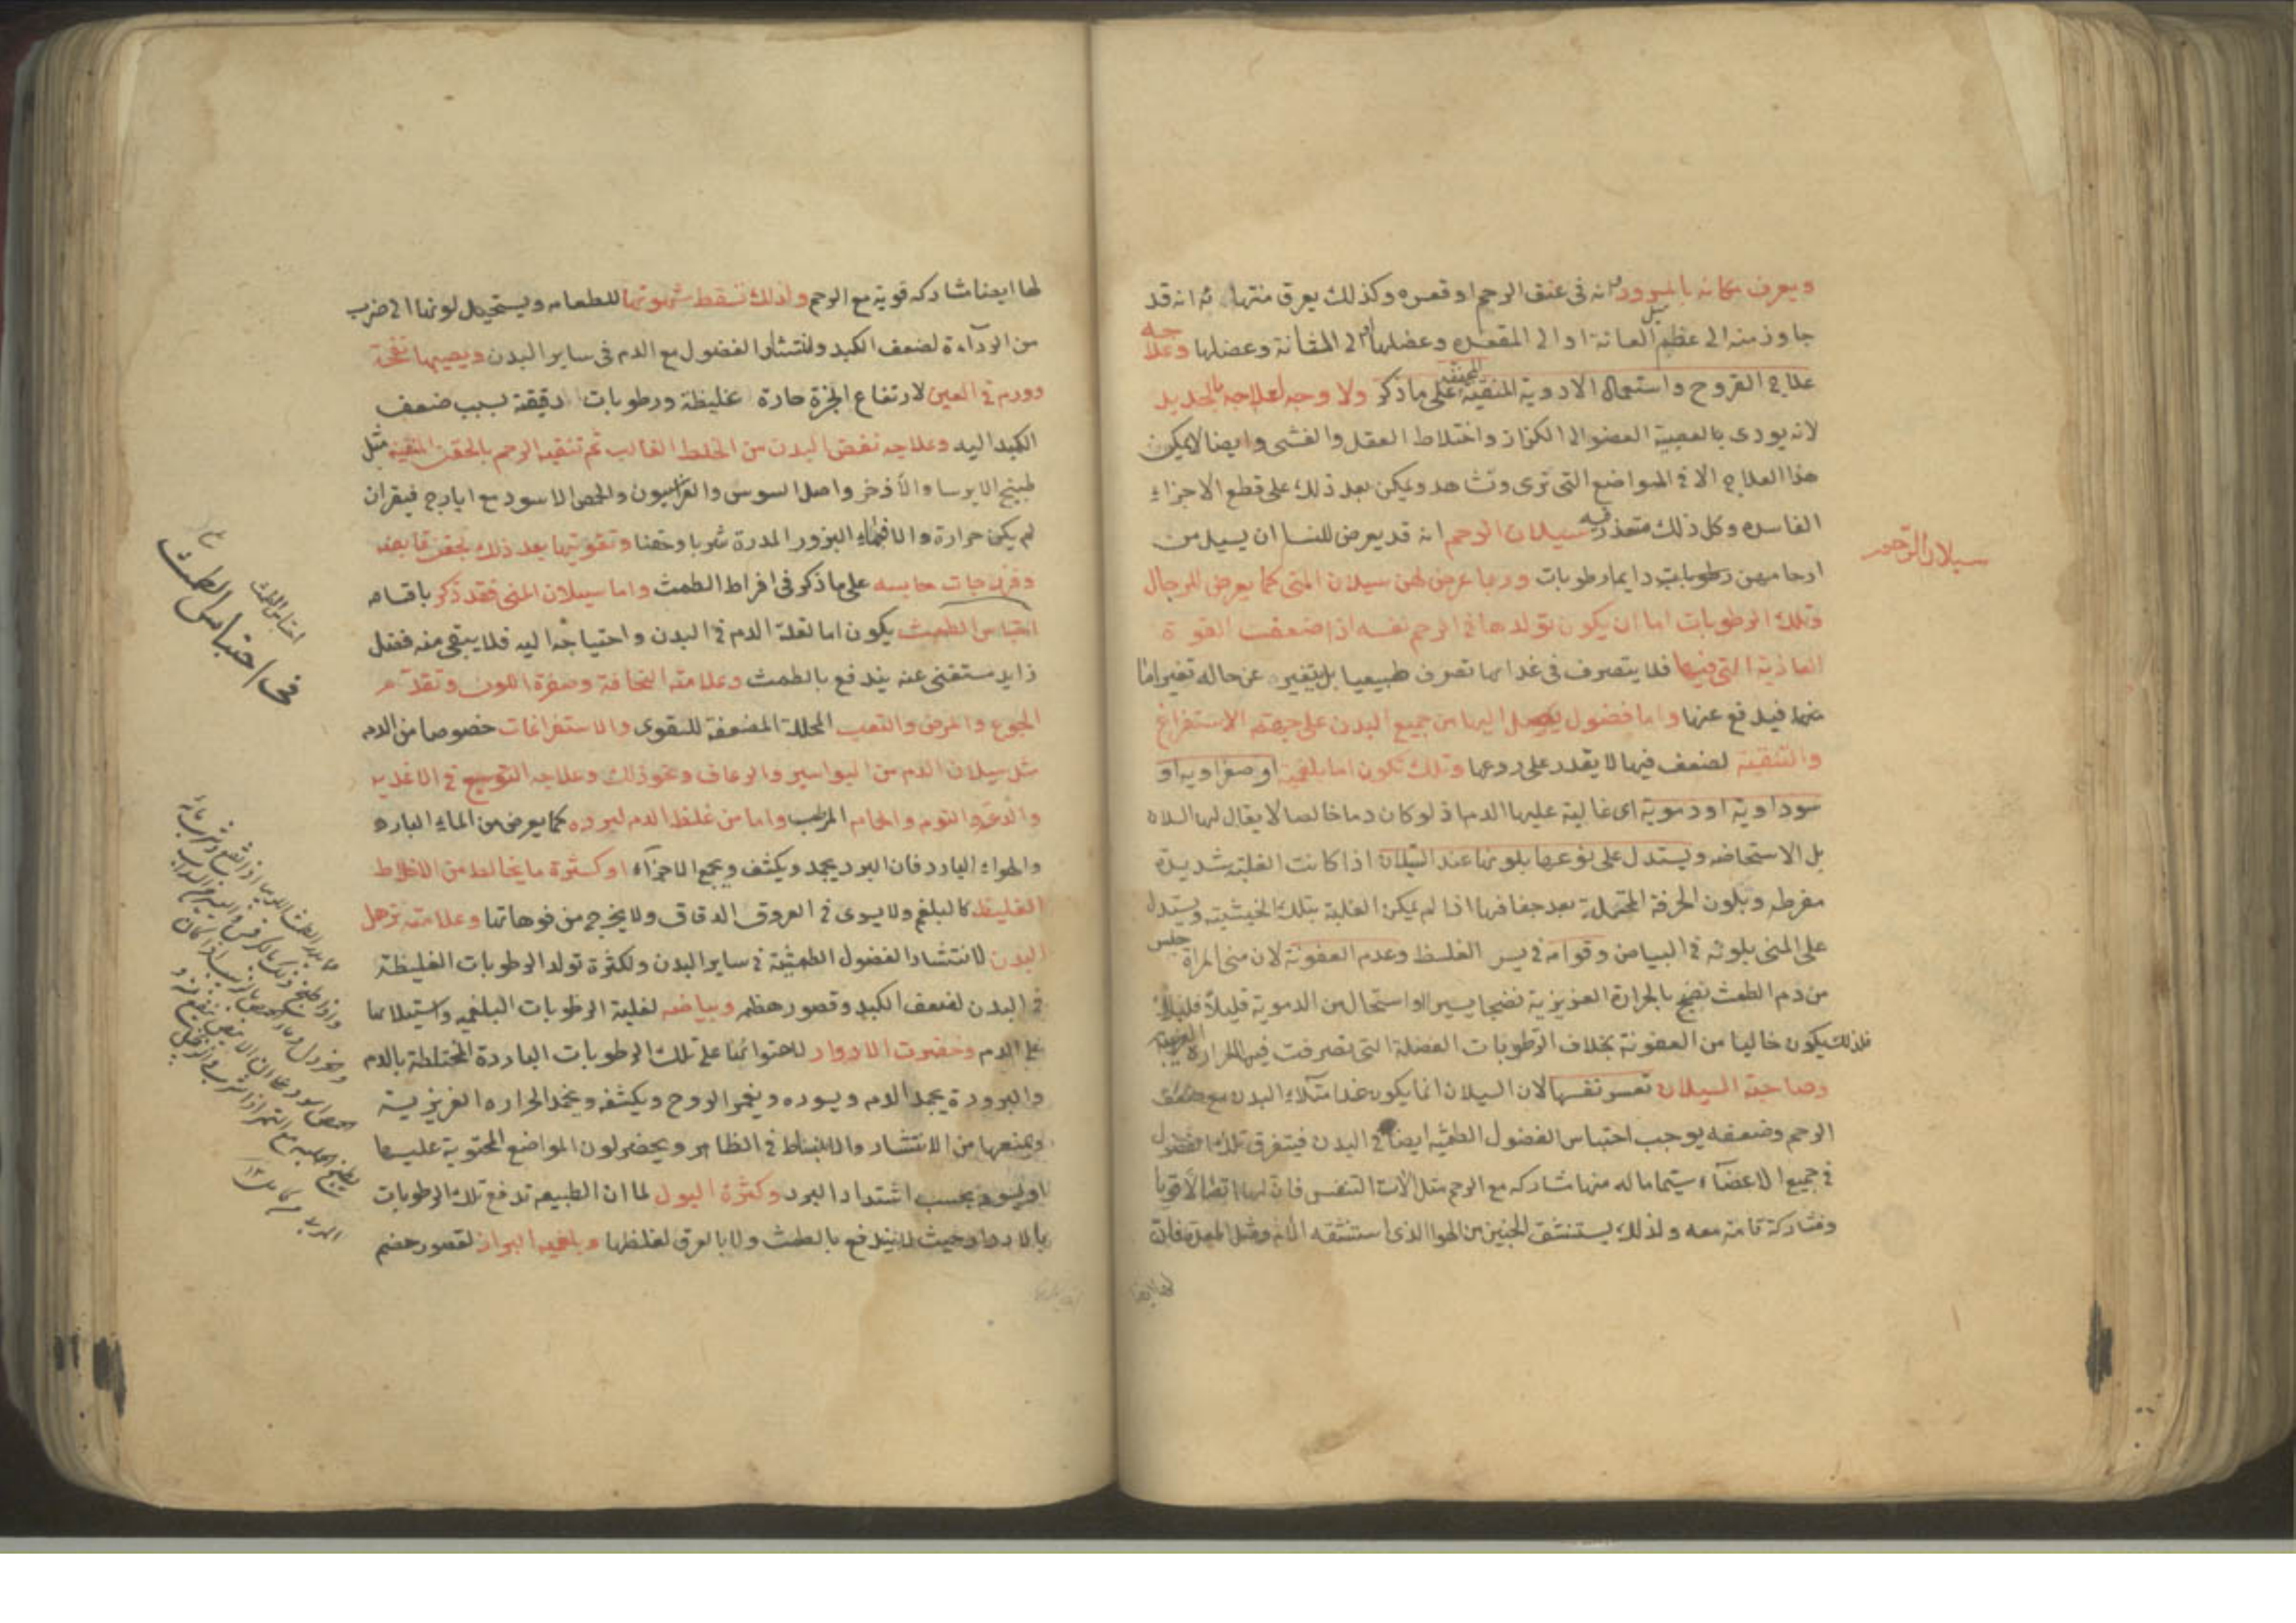 ويعرف مكانه بالمرود انه فى عنق الرحم او قعره وكذلك يعرق منتها ثم انه قد
جاوز منه الى عظم العانة او الى المقعده وعضلها او الى المثانة وعضلها وعلاجه
علاج القروح واستعمال الادوية المنقية المجففة على ما ذكر ولا وجه لعلاجه بالحديد
لانه يودى بالعصبية العضو الى الكزاز واختلاط العقل والغشى وايضا لا يمكن
هذا العلاج الا فى المواضع التى ترى وتشاهد ويمكن بعد ذلك على قطع الاجزاء
الفاسده وكل ذلك متعذر فيه سيلان الرحم انه قد يعرض للنسا ان يسيل من
سيلان الرحم
ارحامهن رطوبات دايما رطوبات وربما عرض لهن سيلان المنى كما يعرض للرجال
وتلك الرطوبات اما ان يكون تولدها فى الرحم نفسه اذا ضعفت القوة
الغاذية التى فيها فلا يتصرف فى غذائها تصرف طبيعيا بل يتغير عن حاله تغيرا ما
منها فيدفع عنها واما فضول يصل اليها من جميع البدن على جهة الاستفراغ
والتنقية لضعف فيها لا يقدر على ردعها وتلك تكون اما بلغمية او صفراويه او
سوداوية او دموية اى غالبة عليها الدم اذ لو كان دما خالصا لا يقال لها السلان
بل الاستحاضه ويستدل على نوعها بلونها عند السيلان اذا كانت الغلبة شديدة
مفرطه وبلون الخرقة المحتملة بعد جفافها اذا لم يكن الغلبة بتلك الحيثية ويستدل
على المنى بلونه فى البياض وقوامه فى يسر الغلظ وعدم العفونة لان منى المراة جنس
من دم الطمث نضج بالحرارة الغريزية نضجا يسيرا واستحال من الدموية قليلا قليلا
فلذلك يكون خاليا من العفونة بخلاف الرطوبات الفضلة التى تصرفت فيها الحرارة الغريبة
وصاحبة السيلان تعسر نفسها لان السيلان انما يكون عند امتلاء البدن مع ضعف
الرحم وضعفه يوجب احتباس الفضول الطمثيه ايضا فى البدن فيتفرق تلك الفضول
فى جميع الاعضاء سيما ما له منها مشاركه مع الرحم مثل الات التنفس فان لها اتصالا قويا
ومشاركة تامة معه ولذلك يستنشق الجنين من الهوا الذى استنشقه الام ومثل المعدة فان
لها ايضا
لها ايضا مشاركه قوية مع الرحم ولذلك تسقط شهوتها للطعام ويستحيل لونها الى ضرب
من الرداءة لضعف الكبد وانتشار الفضول مع الدم فى ساير البدن ويصيبها نفخة
وورم فى العين لارتفاع ابخرة حارة غليظة ورطوبات رقيقة بسبب ضعف
الكبد اليه وعلاجه نفض البدن من الخلط الغالب ثم تنقيه الرحم بالحقن المنقية مثل
طبيخ الايرسا والاذخر واصل السوس والفراسيون والحمص الاسود مع ايارج فيقرا ان
لم يكن حرارة والا فبماء البزور المدرة شربا وحقنا وتقويتها بعد ذلك بحقن قابضه
وفرزجات حابسه على ما ذكر فى افراط الطمث واما سيلان المنى فقد ذكر باقسامه
احتباس الطمث يكون اما لقلة الدم فى البدن واحتياجه اليه فلا يبقى منه فضل
احتباس الطمث
فى احتباس الطمث
زايد مستغنى عنه يندفع بالطمث وعلامته النحافة وصفرة اللون وتقدم
الجوع والمرض والتعب المحللة المضعفة للقوى والاستفراغات خصوصا من الدم
مثل سيلان الدم من البواسير والرعاف ونحو ذلك وعلاجه التوسيع فى الاغذيه
والدعة والنوم والحمام المرطب واما من غلظ الدم لبروده كما يعرض من الماء البارد
والهواء البارد فان البرد يجمد ويكثف ويجمع الاجزاء او كثرة ما يخالط من الاخلاط
الغليظه كالبلغم ولا يسرى فى العروق الدقاق ولا يخرج من فوهاتها وعلامته ترهل
البدن لانتشار الفضول الطمثية فى ساير البدن ولكثرة تولد الرطوبات الغليظة
فى البدن لضعف الكبد وقصور هضمه وبياضه لغلبة الرطوبات البلغميه واستيلائها
على الدم وخضرت الاوراد لاحتوائها على تلك الرطوبات الباردة المختلطة بالدم
والبرودة يجمد الدم ويسوده ويغمر الروح ويكثفه ويخمد الحراره الغريزية
ويمنعها من الانتشار والانبساط فى الظاهر ويخضر لون المواضع المحتوية عليها
او يسود بحسب اشتداد البرد وكثرة البول لما ان الطبيعه تدفع تلك الرطوبات
بالادرار حيث لا يندفع بالطمث ولا بالعرق لغلظها وبلغميه البراز لقصور هضم